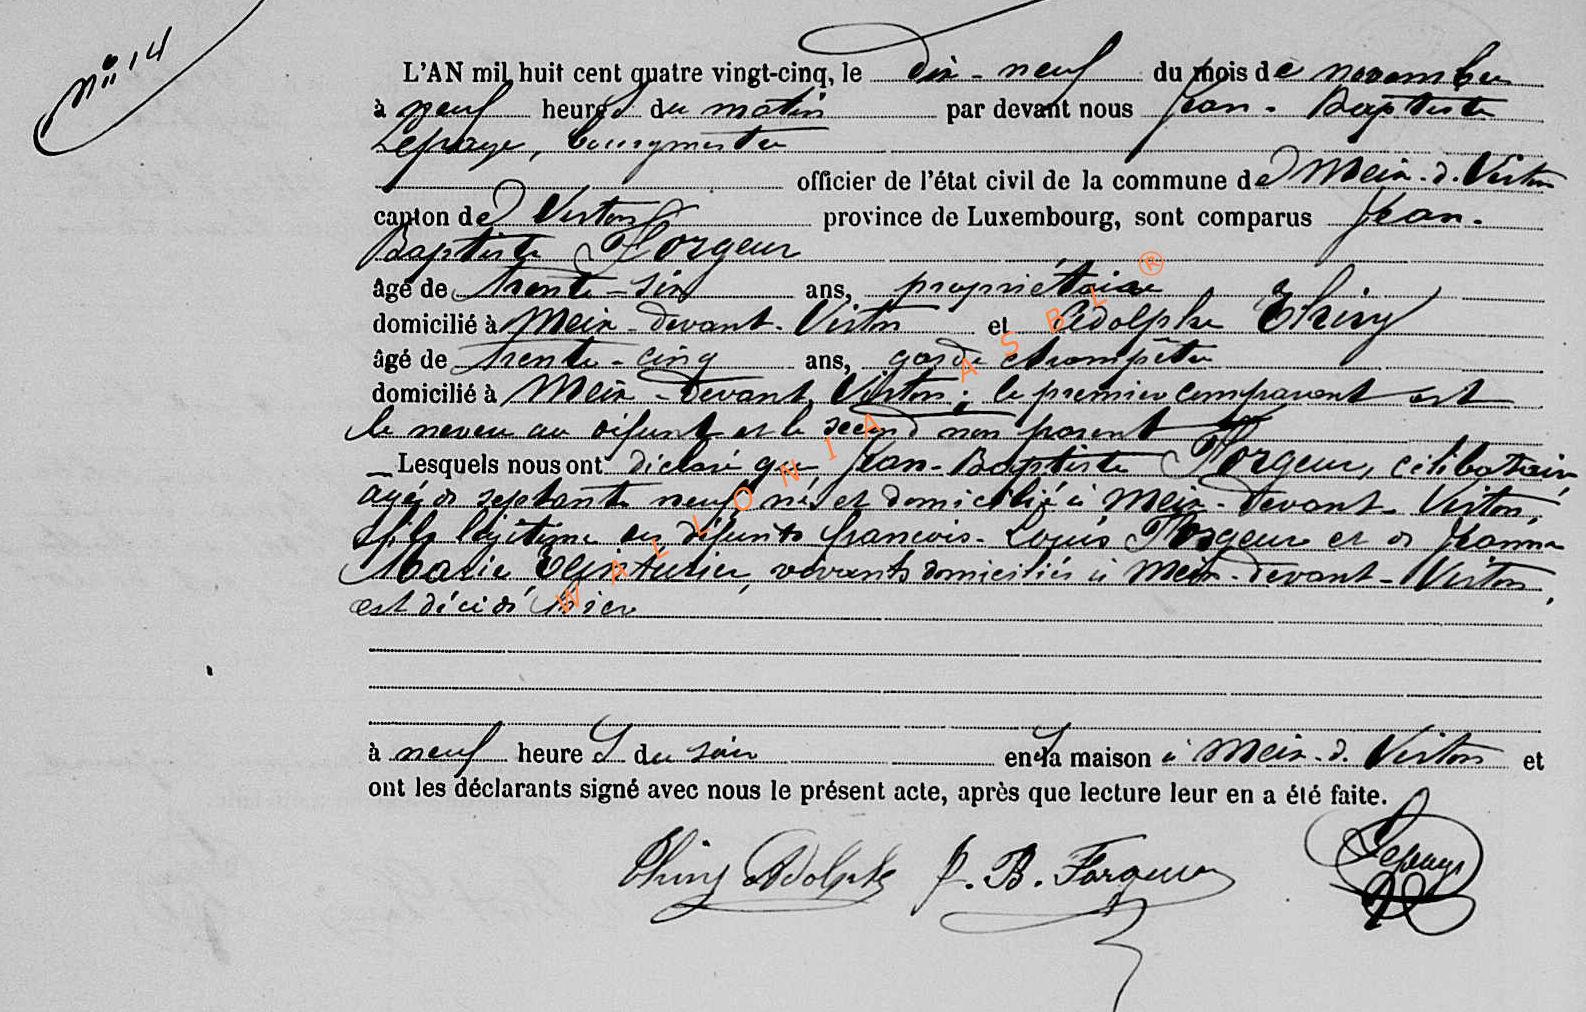 n° 14
L'AN mil huit cent quatre vingt-cinq, le dix-neuf du mois de novembre
à neuf heures du matin par devant nous Jean-Baptiste
Lepage, bourgmestre
officier de l'état civil de la commune de Meix-d.-Virton
canton de Virton province de Luxembourg, sont comparus Jean-
Baptiste Forgeur
âgé de trente-six ans, propriétaire
domicilié à Meix-devant-Virton et Adolphe Thiry
âgé de trente-cinq ans, garde champêtre
domicilié à Meix-devant Virton; le premier comparant est
le neveu au défunt et le second non parent
Lesquels nous ont déclaré que Jean-Baptiste Forgeur, célibataire,
âgé de septante neuf, né et domicilié à Meix-devant-Virton,
fils légitime des défunts françois-Louis Forgeur et de Jeanne
Marie, vivants domiciliés à Meix-devant-Virton,
est décédé hier
à neuf heures du soir en sa maison à Meix-d. Virton et
ont les déclarants signé avec nous le présent acte, après que lecture leur en a été faite.
Thiry Adolphe J. B. Forgeur Lepage
WALLONIA ASBL ®